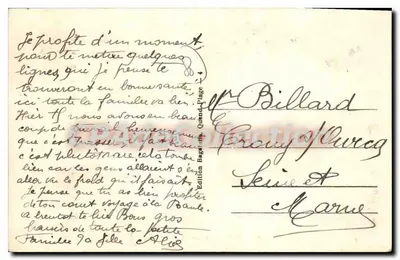 Je profite d'un moment
pour te mettre quelques
lignes, qui je pense te
trouveront en bonne santé
ici toute la famille va bien.
Hier nous avons eu beau
coup de
que c'est
c'est plutôt rare, cela tombe
bien car les gens allaient
le froid qu'il faisait
Je pense que tu as bien profiter
de ton court voyage à la Baule.
a bientot te lire Bons gros
baisers de toute la petite
Famille ta fille Alice
Edition Bagot, Quend-Plage
Mr Billard
Crouy s/Ourcq
Seine et
Marne